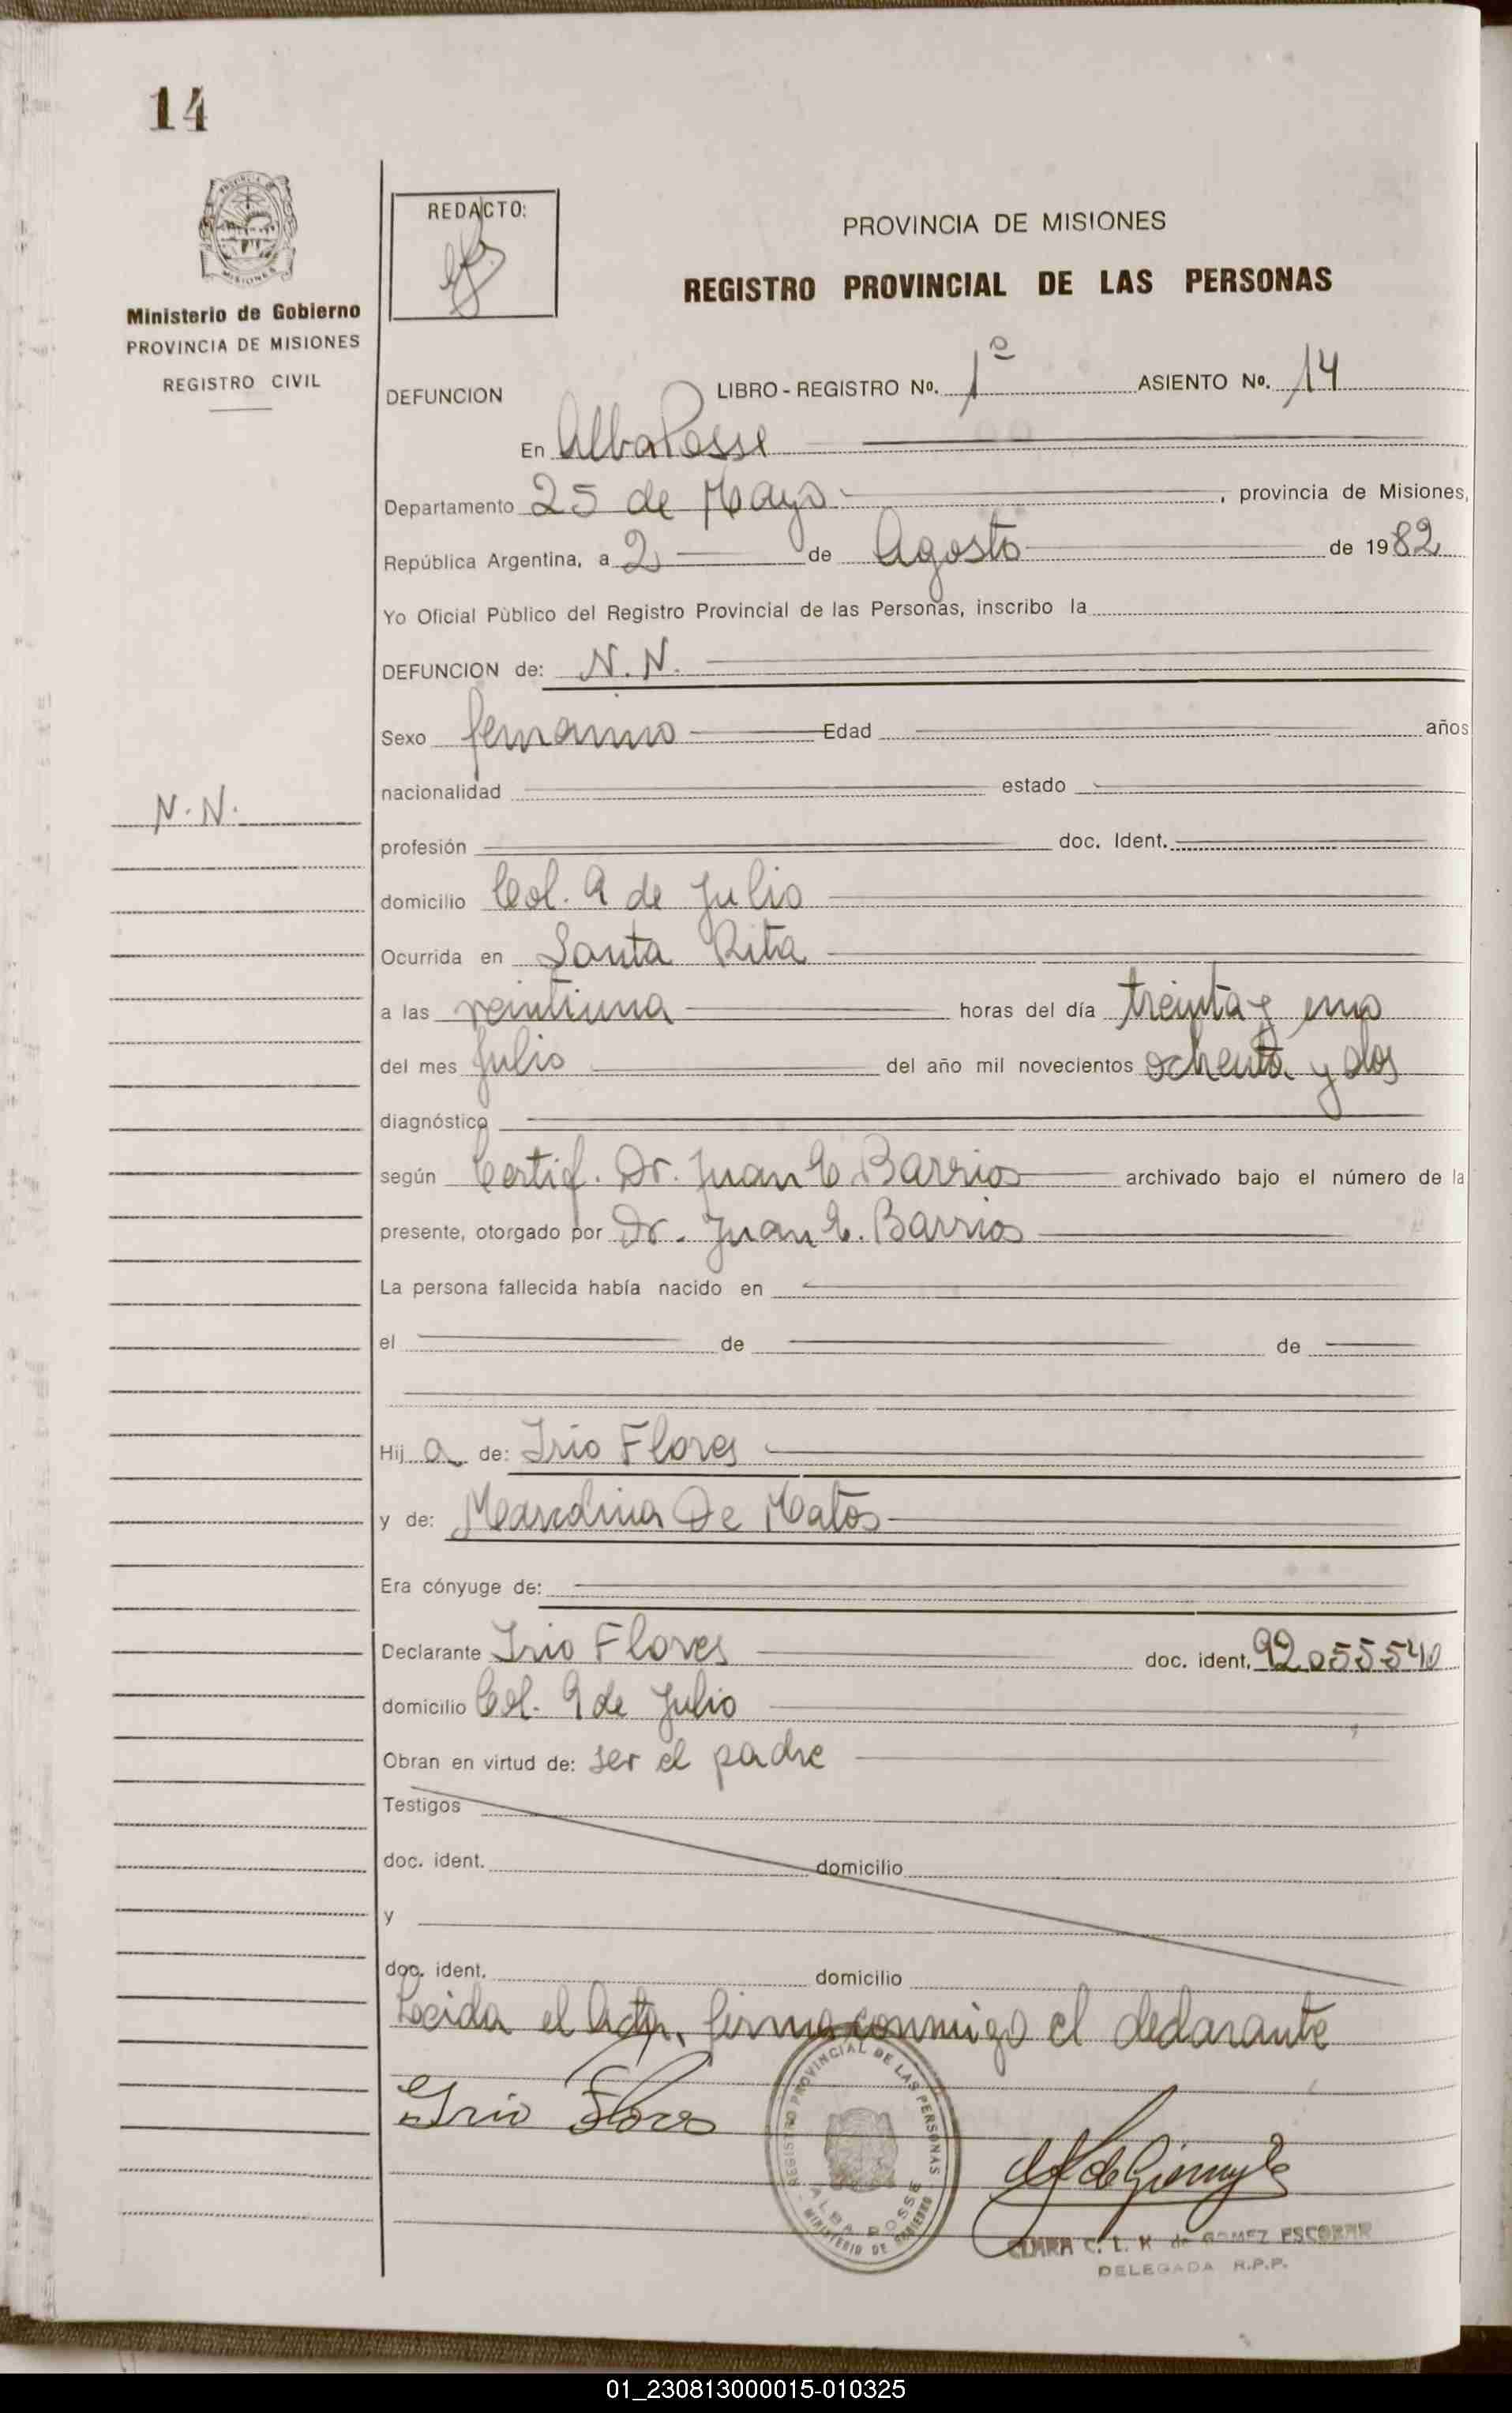 14
PROVINCIA DE MISIONES
Ministerio de Gobierno
PROVINCIA DE MISIONES
REGISTRO CIVIL
REDACTO:
PROVINCIA DE MISIONES
REGISTRO PROVINCIAL DE LAS PERSONAS
DEFUNCION LIBRO - REGISTRO Nº. 1º ASIENTO Nº. 14
En Alba Posse
Departamento 25 de Mayo , provincia de Misiones,
República Argentina, a 2 de Agosto de 1982
Yo Oficial Público del Registro Provincial de las Personas, inscribo la
DEFUNCION de: N.N.
Sexo femenino Edad años
nacionalidad estado
N.N.
profesión doc. Ident.
domicilio Col. 9 de Julio
Ocurrida en Santa Rita
a las veintiuna horas del día treinta y uno
del mes Julio del año mil novecientos ochenta y dos
diagnóstico
según Certif. Dr. Juan C. Barrios archivado bajo el número de la
presente, otorgado por Dr. Juan C. Barrios
La persona fallecida había nacido en
el de de
Hij a de: Irio Flores
y de: De Matos
Era cónyuge de:
Declarante Irio Flores doc. ident. 92.055.540
domicilio Col. 9 de Julio
Obran en virtud de: ser el padre
Testigos
doc. ident. domicilio
y
doc. ident. domicilio
Leida el Acta, firma conmigo el declarante
Irio Flores
REGISTRO PROVINCIAL DE LAS PERSONAS
ALBA POSSE
MINISTERIO DE GOBIERNO
CLARA C. L. K de GOMEZ ESCOBAR
DELEGADA R.P.P.
01_230813000015-010325